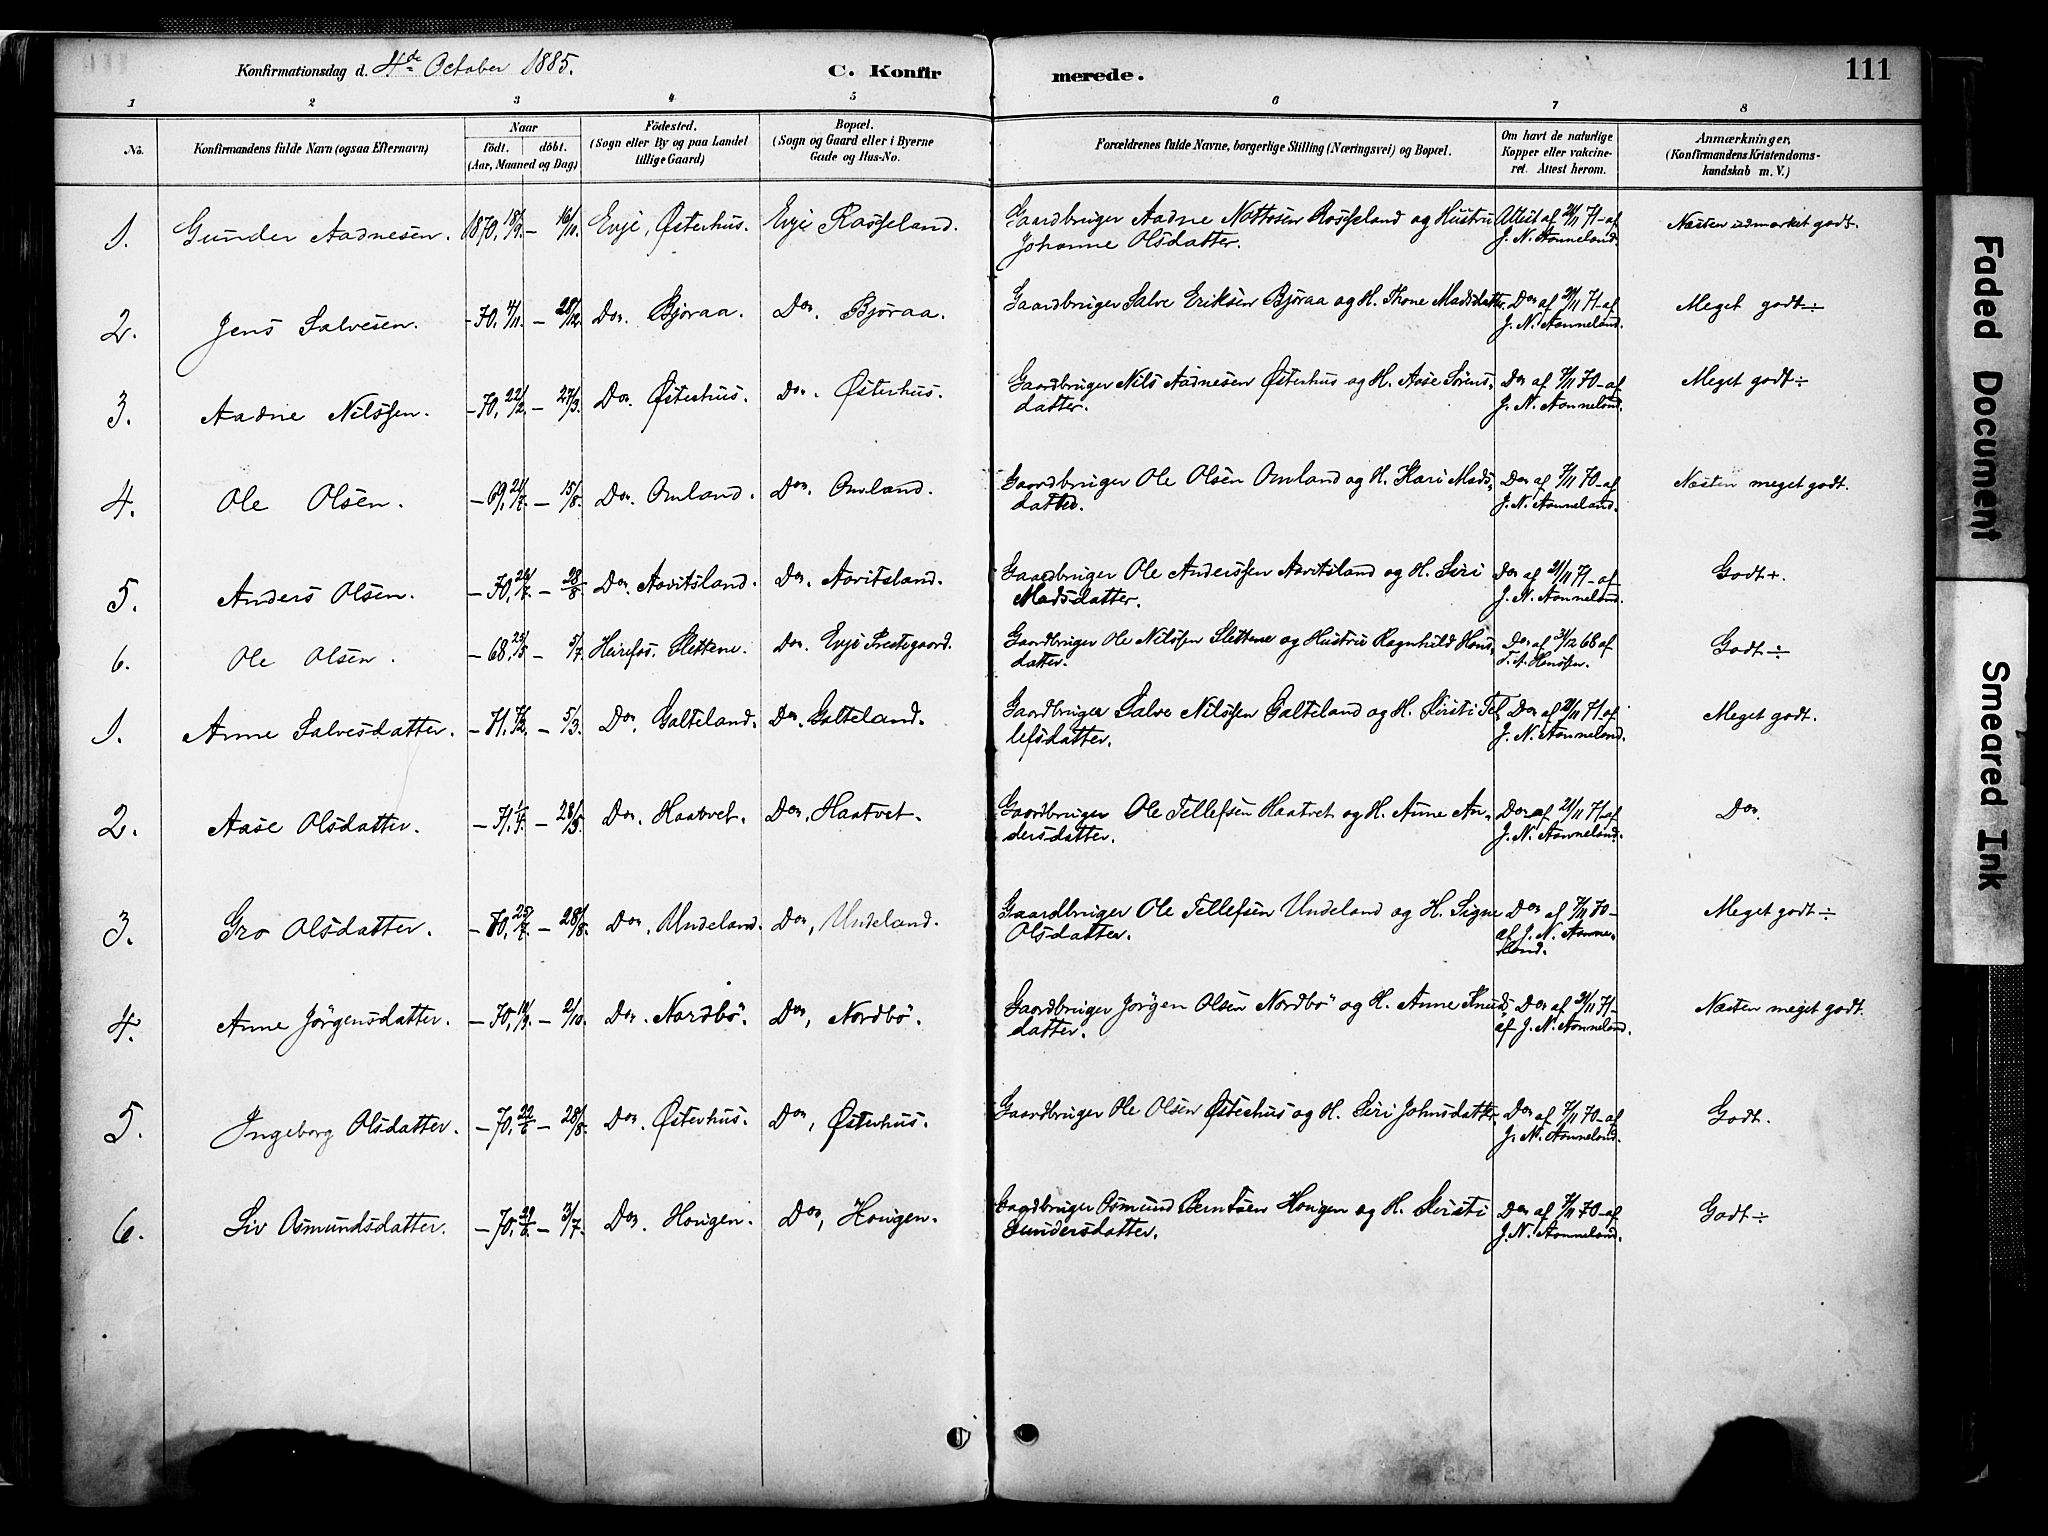 Konfirmationsdag d. 4de October 1885.
C. Konfirmerede.
111
1 2 3 4 5 6 7 8
No.
Konfirmandens fulde Navn (ogsaa Efternavn)
Naar
födt. döbt.
(Aar, Maaned og Dag)
Födested.
(Sogn eller By og paa Landet
tillige Gaard)
Bopæl.
(Sogn og Gaard eller i Byerne
Gade og Hus-No.
Forældrenes fulde Navne, borgerlige Stilling (Næringsvei) og Bopæl.
Om havt de naturlige
Kopper eller vakcine-
ret. Attest herom.
Anmærkninger,
(Konfirmandens Kristendoms-
kundskab m. V.)
1. Gunder Aadnesen. 1870, 18/9. – 16/10. Evje, Østerhus. Evje Rosseland. Gaardbruger Aadne Nottosen Rosseland og Hustru Attest af 21/11 71 – af Næsten udmærket godt.
Johanne Olsdatter. J. N. Aanneland.
2. Jens Salvesen. – 70, 4/11. – 28/12. Do. Bjøraa. Do. Bjøraa. Gaardbruger Salve Eriksen Bjøraa og H. Thone Madsdatter. Do af 21/11 71 – af Meget godt ÷
J. N. Aanneland.
3. Aadne Nilssen. – 70, 22/2. – 27/3. Do. Østerhus. Do. Østerhus. Gaardbruger Nils Aadnesen Østerhus og H. Aase Sørens- Do af 7/11 70 – af Meget godt ÷
datter. J. N. Aanneland.
4. Ole Olsen. – 69, 21/7. – 15/8. Do. Omland. Do. Omland. Gaardbruger Ole Olsen Omland og H. Kari Mads- Do af 7/11 70 – af Næsten meget godt.
datter. J. N. Aanneland.
5. Anders Olsen. – 70, 26/7. – 28/8 Do. Aavitsland. Do. Aavitsland. Gaardbruger Ole Anderssen Aavitsland og H. Siri Do af 21/11 71 – af Godt +.
Madsdatter. J. N. Aanneland.
6. Ole Olsen. – 68, 25/5 – 5/7. Heirefos. Slettene. Do. Evje Prestegaard. Gaardbruger Ole Nilssen Slettene og Hustru Ragnhild Hans- Do af 31/12 68 af Godt ÷
datter. Hanssen.
1. Anne Salvesdatter. – 71, – 5/3. Do. Galteland. Do. Galteland. Gaardbruger Salve Nilssen Galteland og H. Kirsti Tel- Do af 21/11 71 af Meget godt.
lefsdatter. J. N. Aanneland.
2. Aase Olsdatter. – 71, 1/4. – 28/5. Do. Haatvet. Do. Haatvet. Gaardbruger Ole Tellefsen Haatvet og H. Anne An- Do af 21/11 71 – af Do.
dersdatter. J. N. Aanneland.
3. Gro Olsdatter. – 70, 25/7. – 28/8. Do. Undeland. Do, Undeland. Gaardbruger Ole Tellefsen Undeland og H. Signe Do af 7/11 70 – Meget godt ÷
Olsdatter. af J. N. Aanne-
land.
4. Anne Jörgensdatter. – 70, 10/9. – 2/10. Do. Nordbö. Do, Nordbö. Gaardbruger Jörgen Olsen Nordbö og H. Anne Knuds- Do af 21/11 71 – Næsten meget godt.
datter. af J. N. Aanneland.
5. Ingeborg Olsdatter. – 70, 22/6 – 28/8. Do. Østerhus. Do, Østerhus. Gaardbruger Ole Olsen Østerhus og H. Siri Johnsdatter. Do af 7/11 70 – af Godt.
J. N. Aanneland.
6. Siv Asmundsdatter. – 70, 29/6. – 3/7. Do. Hougen. Do, Hougen. Gaardbruger Asmund Berntsen Hougen og H. Kirsti Do af 7/11 70 – af Godt ÷
Gundersdatter. J. N. Aanneland.
Faded Document
Smeared Ink